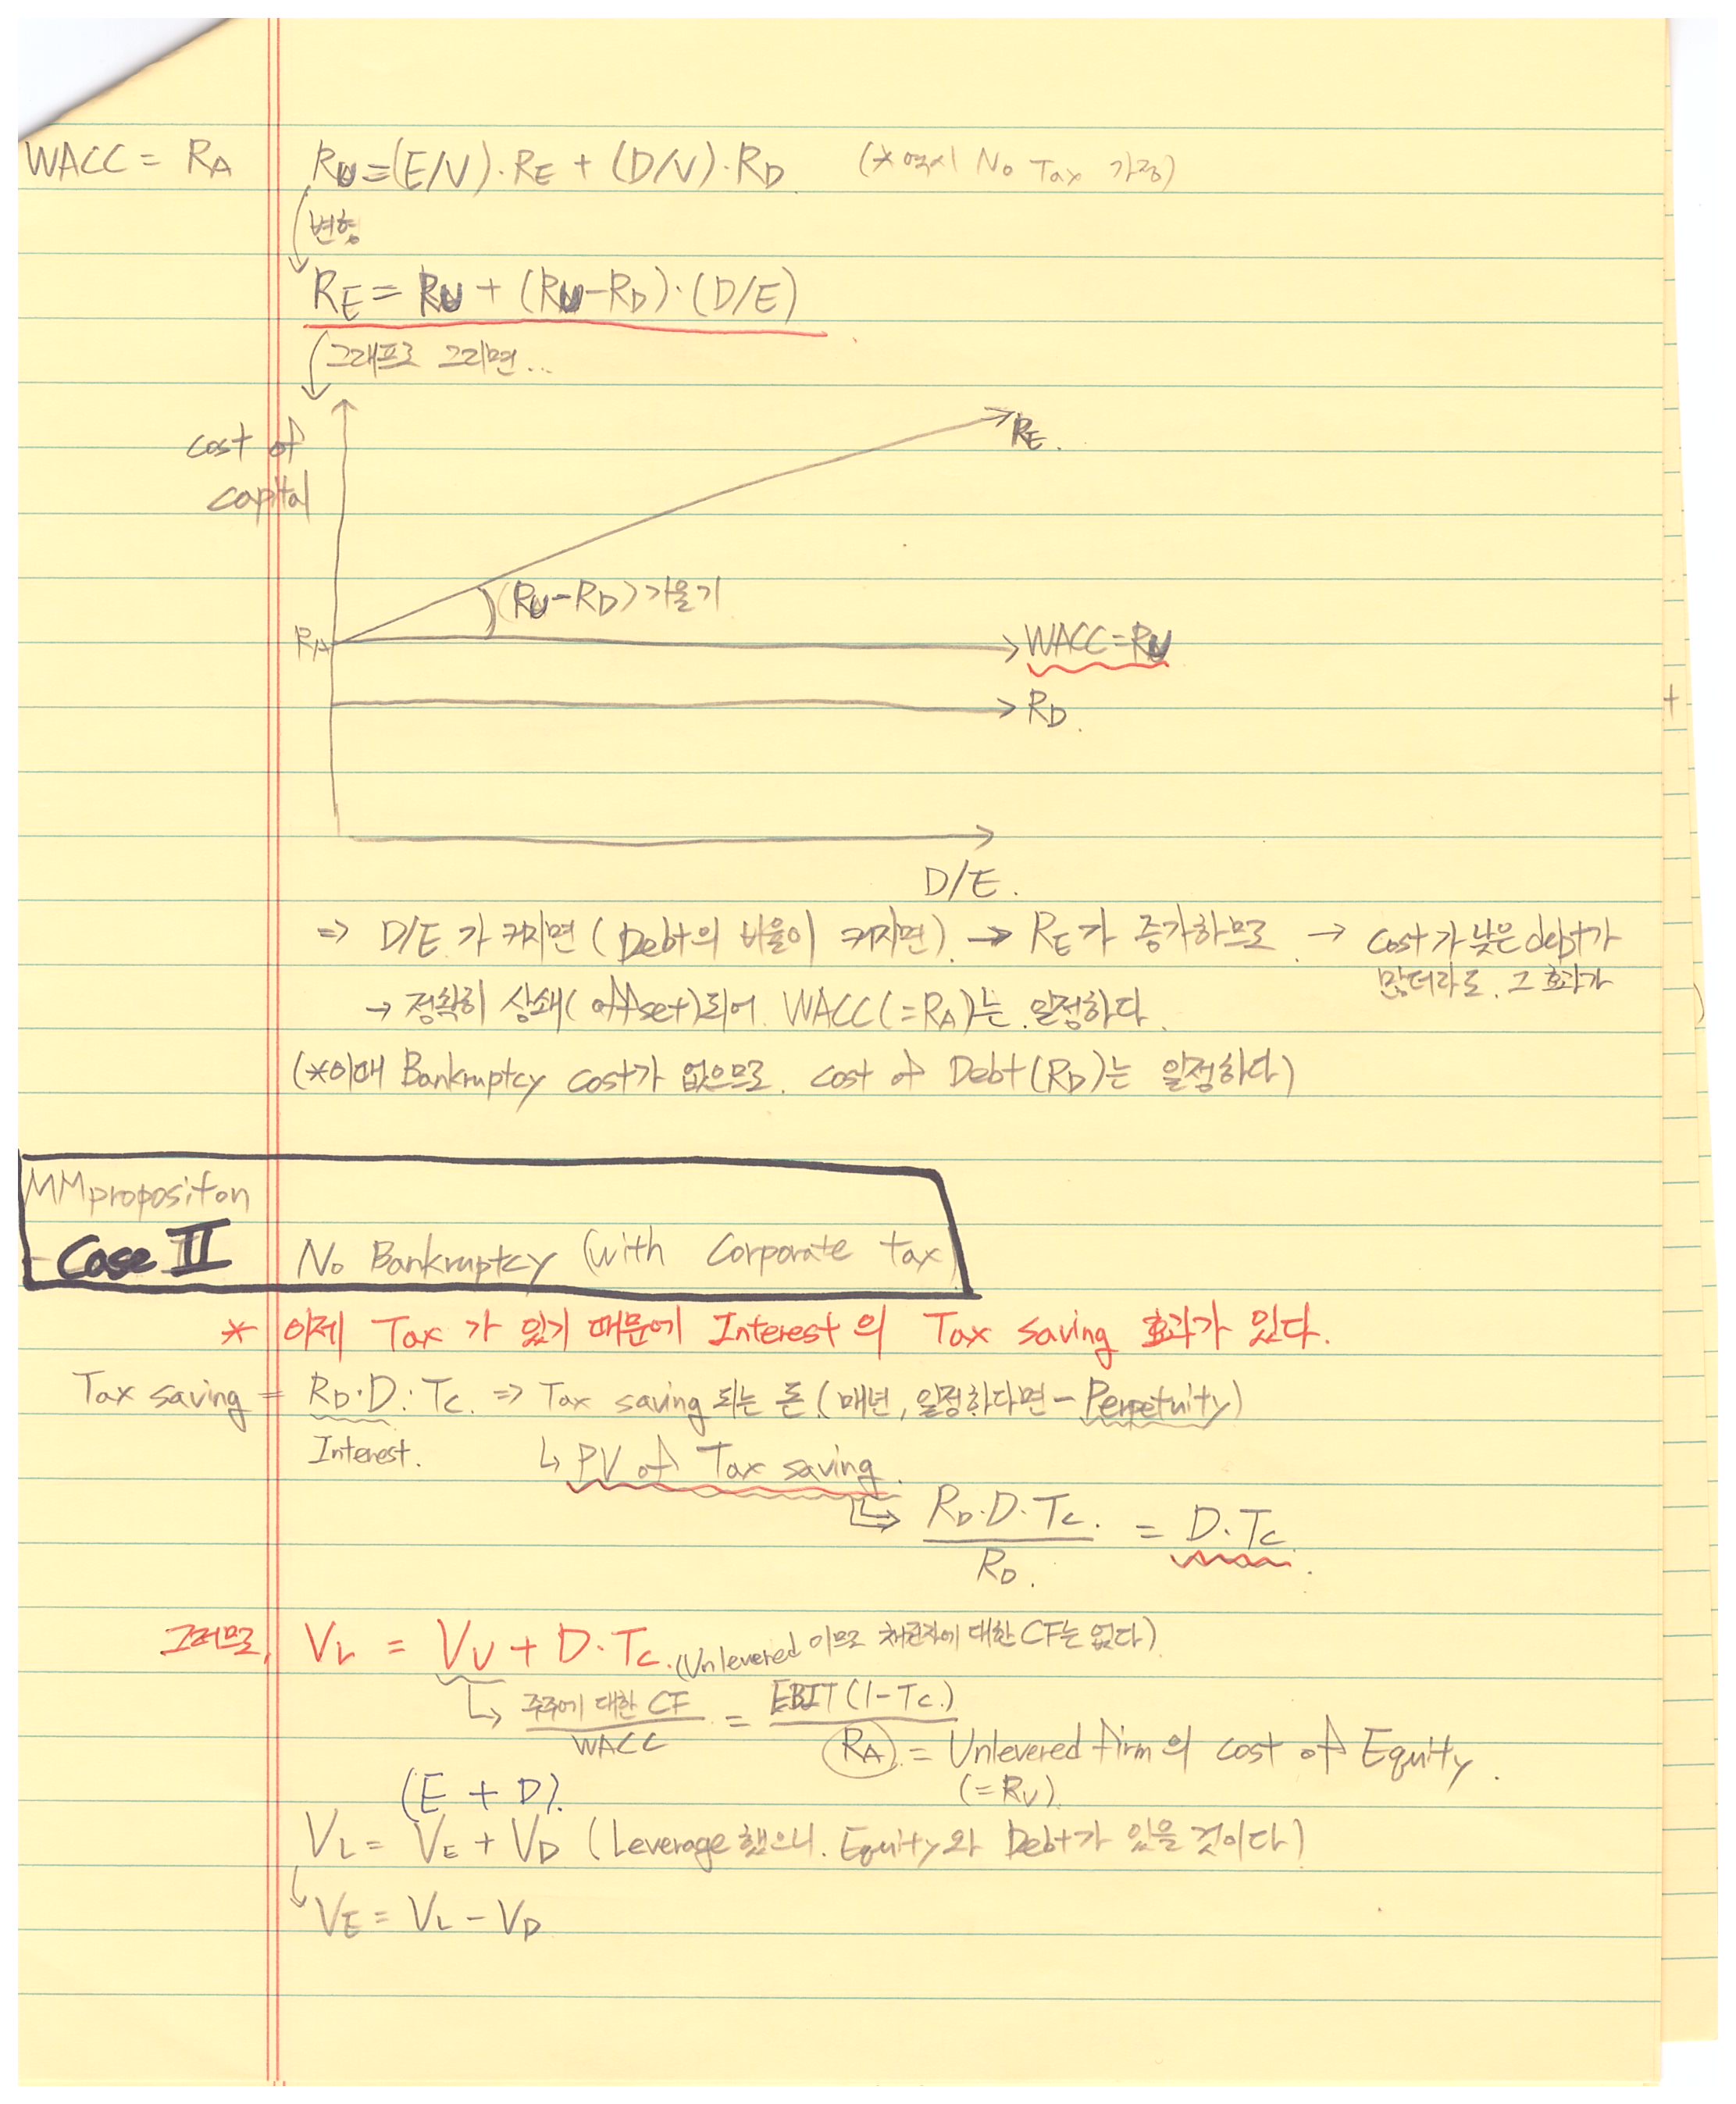 WACC = RA RU = (E/V)·RE + (D/V)·RD (*역시 No Tax 가정)
변형
RE = RU + (RU-RD)·(D/E)
그래프로 그리면...
cost of
capital
RE.
(RU-RD) 기울기
RA
WACC=RU
RD.
D/E.
⇒ D/E가 커지면 (Debt의 비율이 커지면) → RE가 증가하므로 → cost가 낮은 debt가
많더라도, 그 효과가
→ 정확히 상쇄(offset)되어 WACC(=RA)는 일정하다.
(*이때 Bankruptcy cost가 없으므로 cost of Debt(RD)는 일정하다)
MM propositon
Case II No Bankruptcy (with Corporate tax)
* 이제 Tax가 있기 때문에 Interest의 Tax saving 효과가 있다.
Tax saving = RD·D·Tc ⇒ Tax saving 되는 돈 (매년, 일정하다면 - Perpetuity)
Interest. ↳ PV of Tax saving.
RD·D·Tc. = D·Tc.
RD.
그러므로, VL = VU + D·Tc. (Unlevered 이므로 채권자에 대한 CF는 없다)
↳ 주주에 대한 CF = EBIT(1-Tc.)
WACC RA = Unlevered firm의 cost of Equity.
(E + D). (=RU)
VL = VE + VD (Leverage 했으니. Equity와 Debt가 있을 것이다)
VE = VL - VD